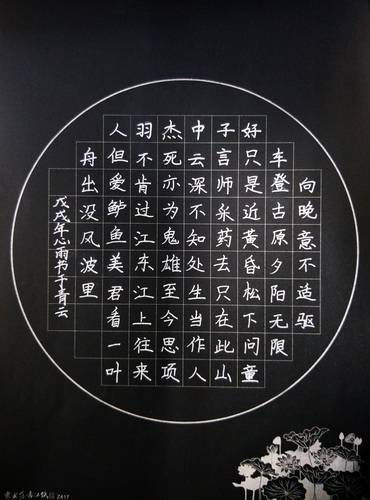 向晚意不造驱
车登古原夕阳无限
好只是近黄昏松下问童
子言师采药去只在此山
中云深不知处生当作人
杰死亦为鬼雄至今思项
羽不肯过江东江上往来
人但爱鲈鱼美君看一叶
舟出没风波里
戊戌年心雨书于青云